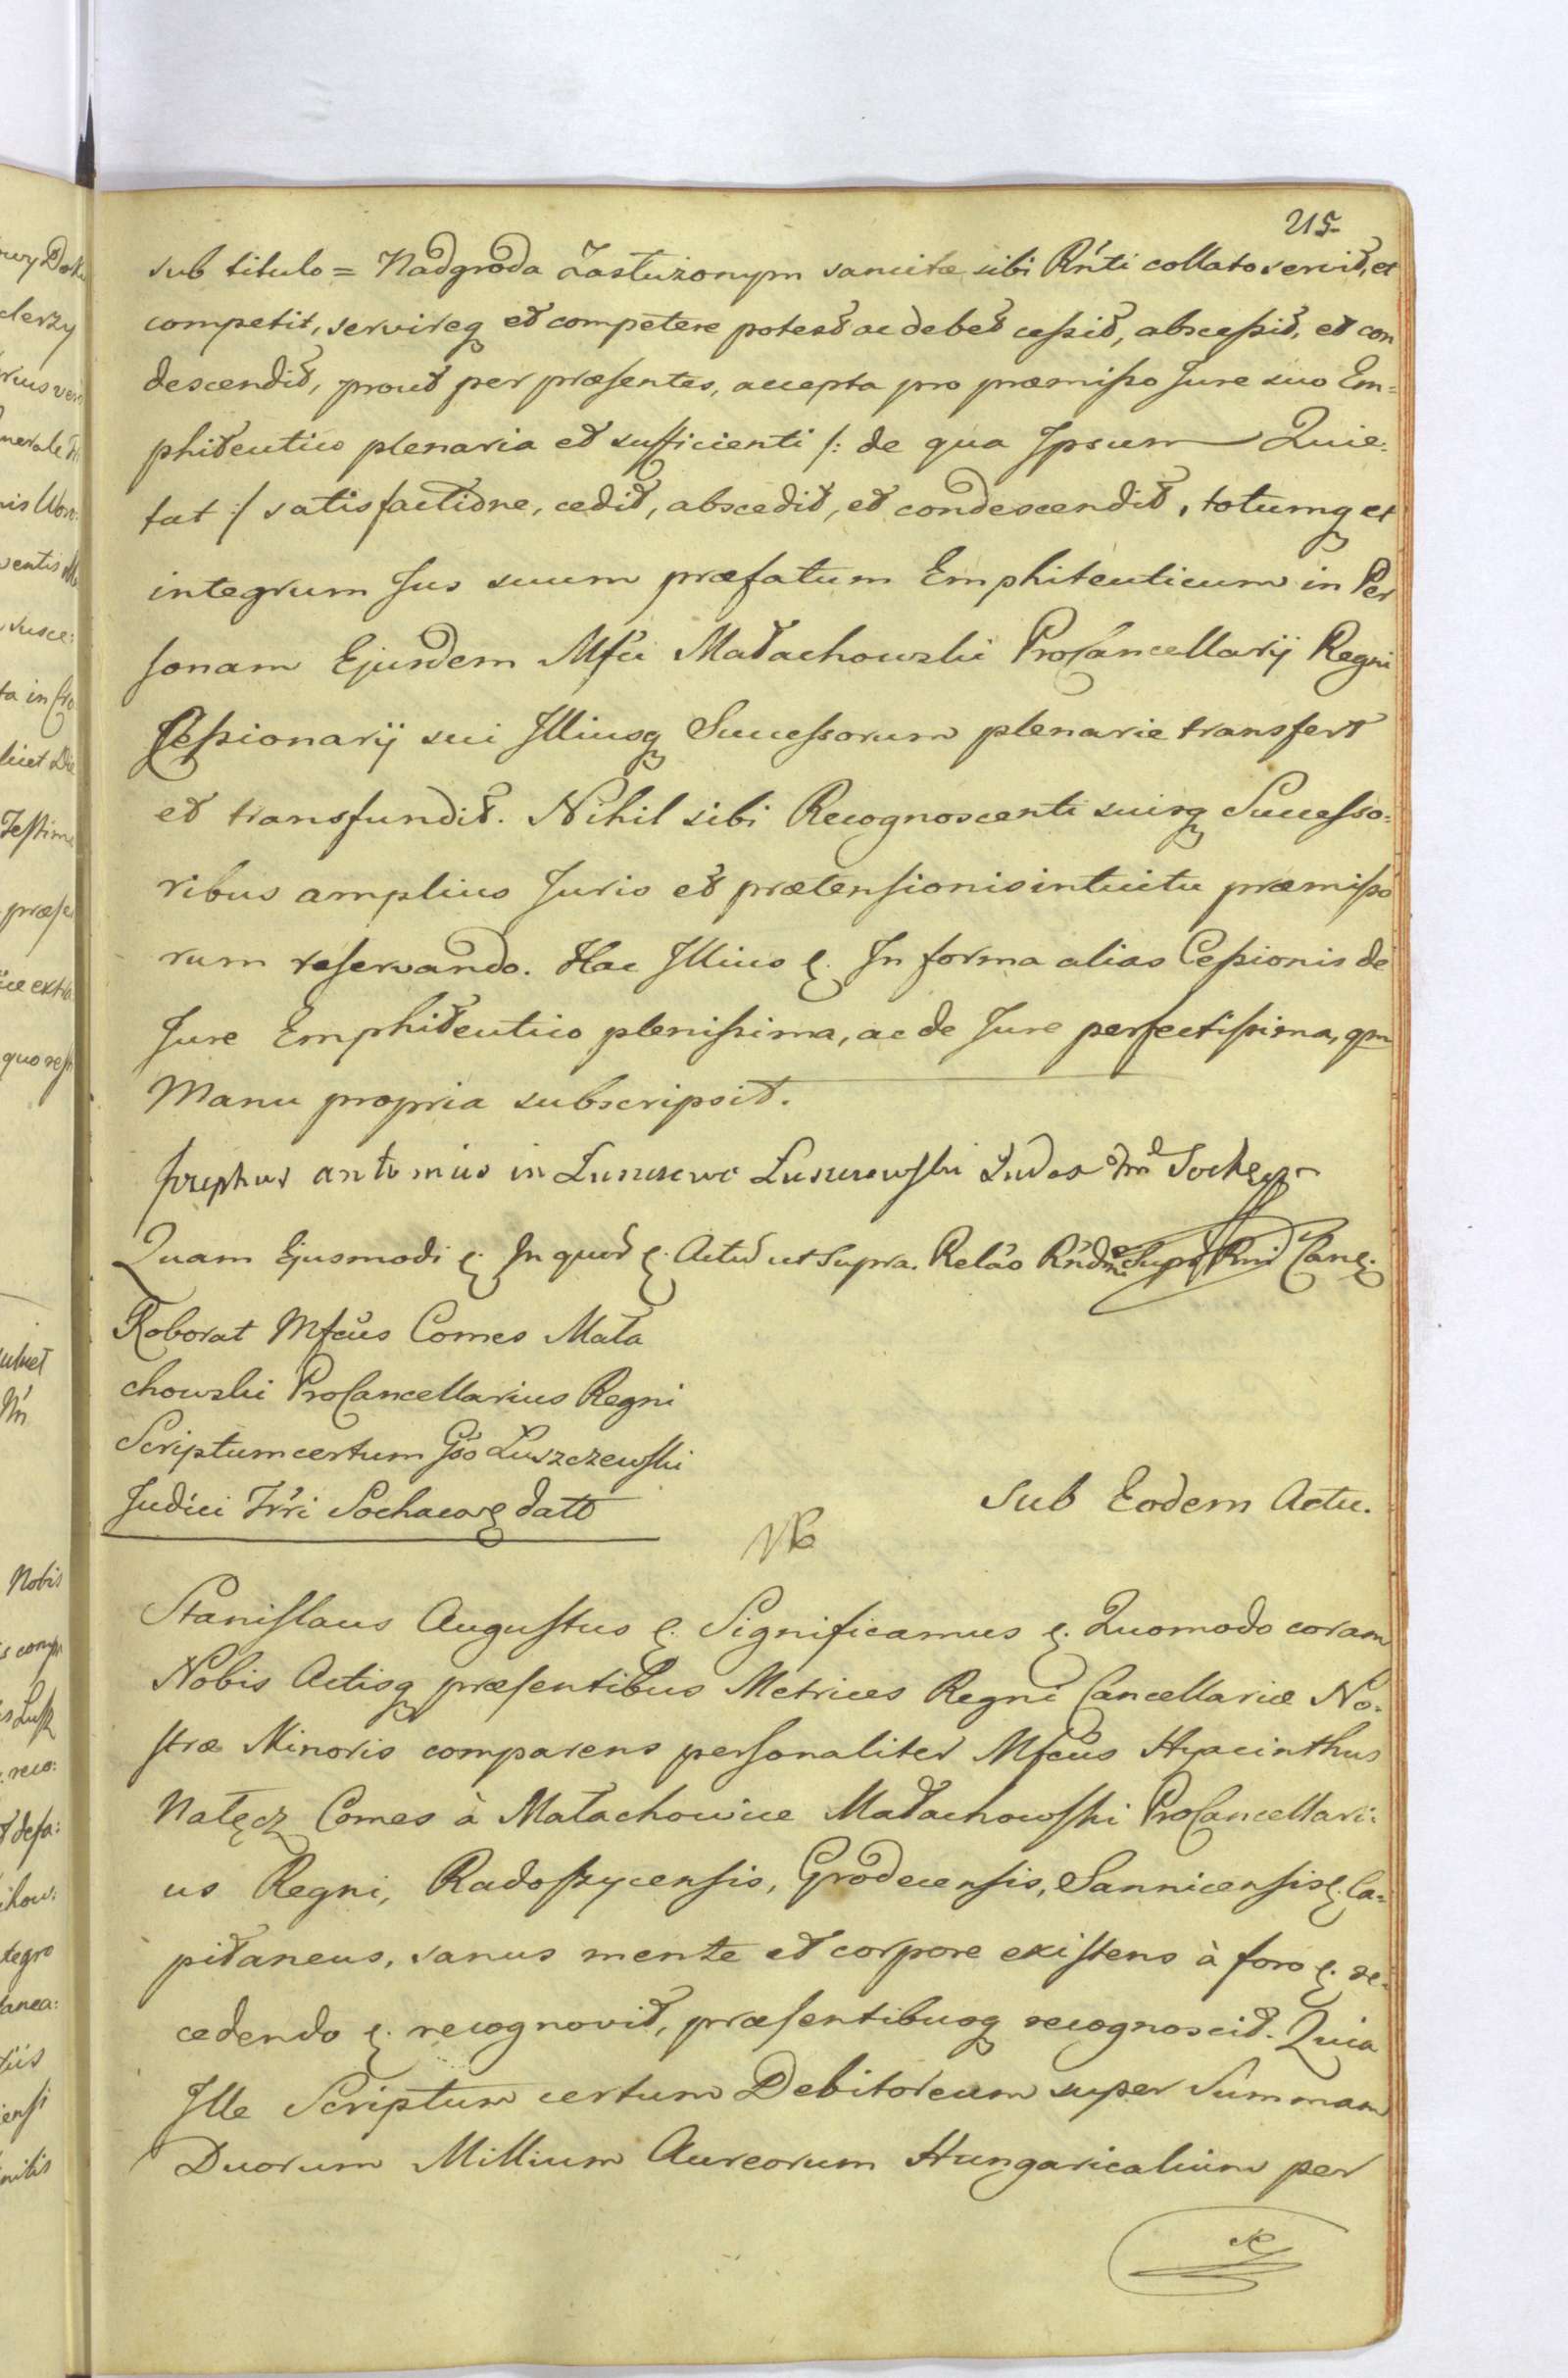 215
sub titulo = Nadgroda Zasłużonym sancitæ sibi Rńti collato servit, et
competit, servireq et competere potest ac debet cessit, abscessit, et con
descendit, prout per præsentes, accepta pro præmisso Jure suo Em=
phiteutico plenaria et sufficienti /: de qua Ipsum Quie:
tat :/ satisfactione, cedit, abscedit, et condescendit, totumq et
integrum Jus suum præfatum Emphiteuticum in Per
sonam Ejusdem Mfci Małachowski ProCancellarij Regni
Cessionarij sui Illiusq Successorum plenarie transfert
et transfundit. Nihil sibi Recognoscenti suisq Successo=
ribus amplius Juris et prætensionis intuitu præmisso
rum reservando. Hac Illius &. In forma alias Cessionis de
Jure Emphiteutico plenissima, ac de Jure perfectissima, qm
Manu propria subscripsit.
Josephus antonius in Luszczewo Luszczewski Judex
Quam Ejusmodi &. In quod &. Actu ut supra. Relão Canc.
Roborat Mfcus Comes Mała
chowski ProCancellarius Regni
Scriptum certum Gso Luszczewski
Judici Trri Sochacov dato
Sub Eodem Actu.
Stanislaus Augustus &. Significamus &. Quomodo coram
Nobis Actisq præsentibus Metrices Regni Cancellariæ No=
stræ Minoris comparens personaliter Mfcus Hyacinthus
Nałęcz Comes à Małachowice Małachowski ProCancellari=
us Regni, Radoszycensis, Grodecensis, Sannicensis &. Ca=
pitaneus, sanus mente et corpore existens à foro &. re=
cedendo &. recognovit, præsentibusq recognoscit. Quia
Ille Scriptum certum Debitoreum super Summam
Duorum Millium Aureorum Hungaricalium per